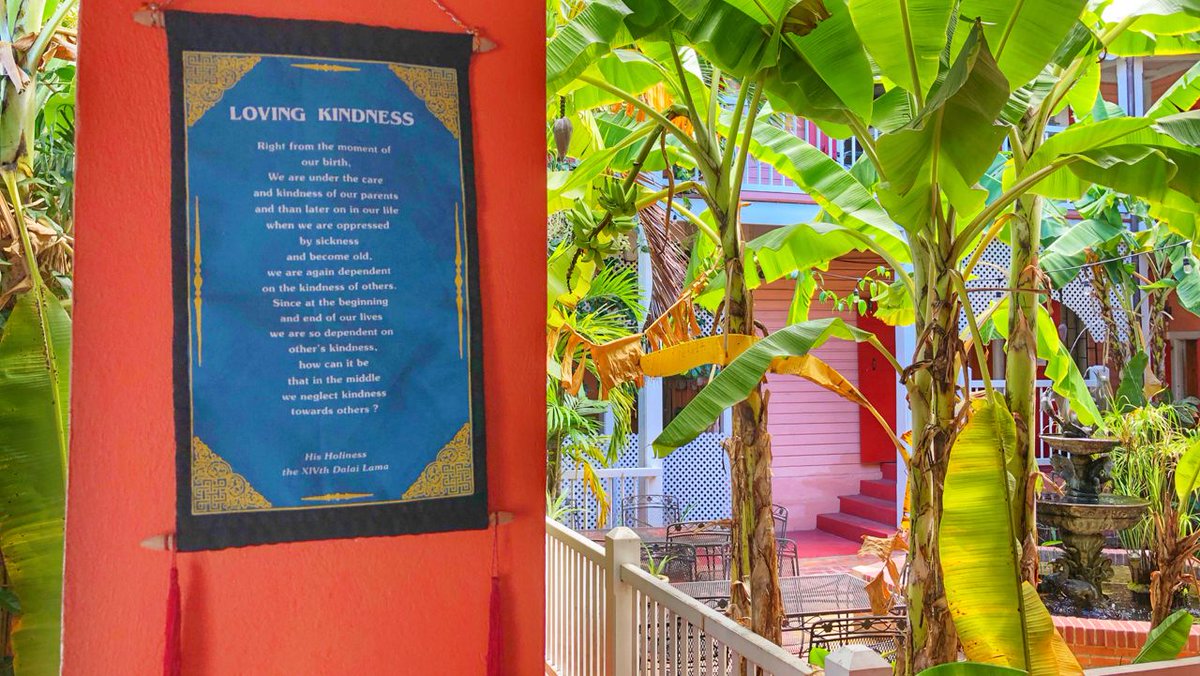 LOVING KINDNESS
Right from the moment of
our birth,
We are under the care
and kindness of our parents
and than later on in our life
when we are oppressed
by sickness
and become old,
we are again dependent
on the kindness of others.
Since at the beginning
and end of our lives
we are so dependent on
other's kindness,
how can it be
that in the middle
we neglect kindness
towards others ?
His Holiness
the XIVth Dalai Lama